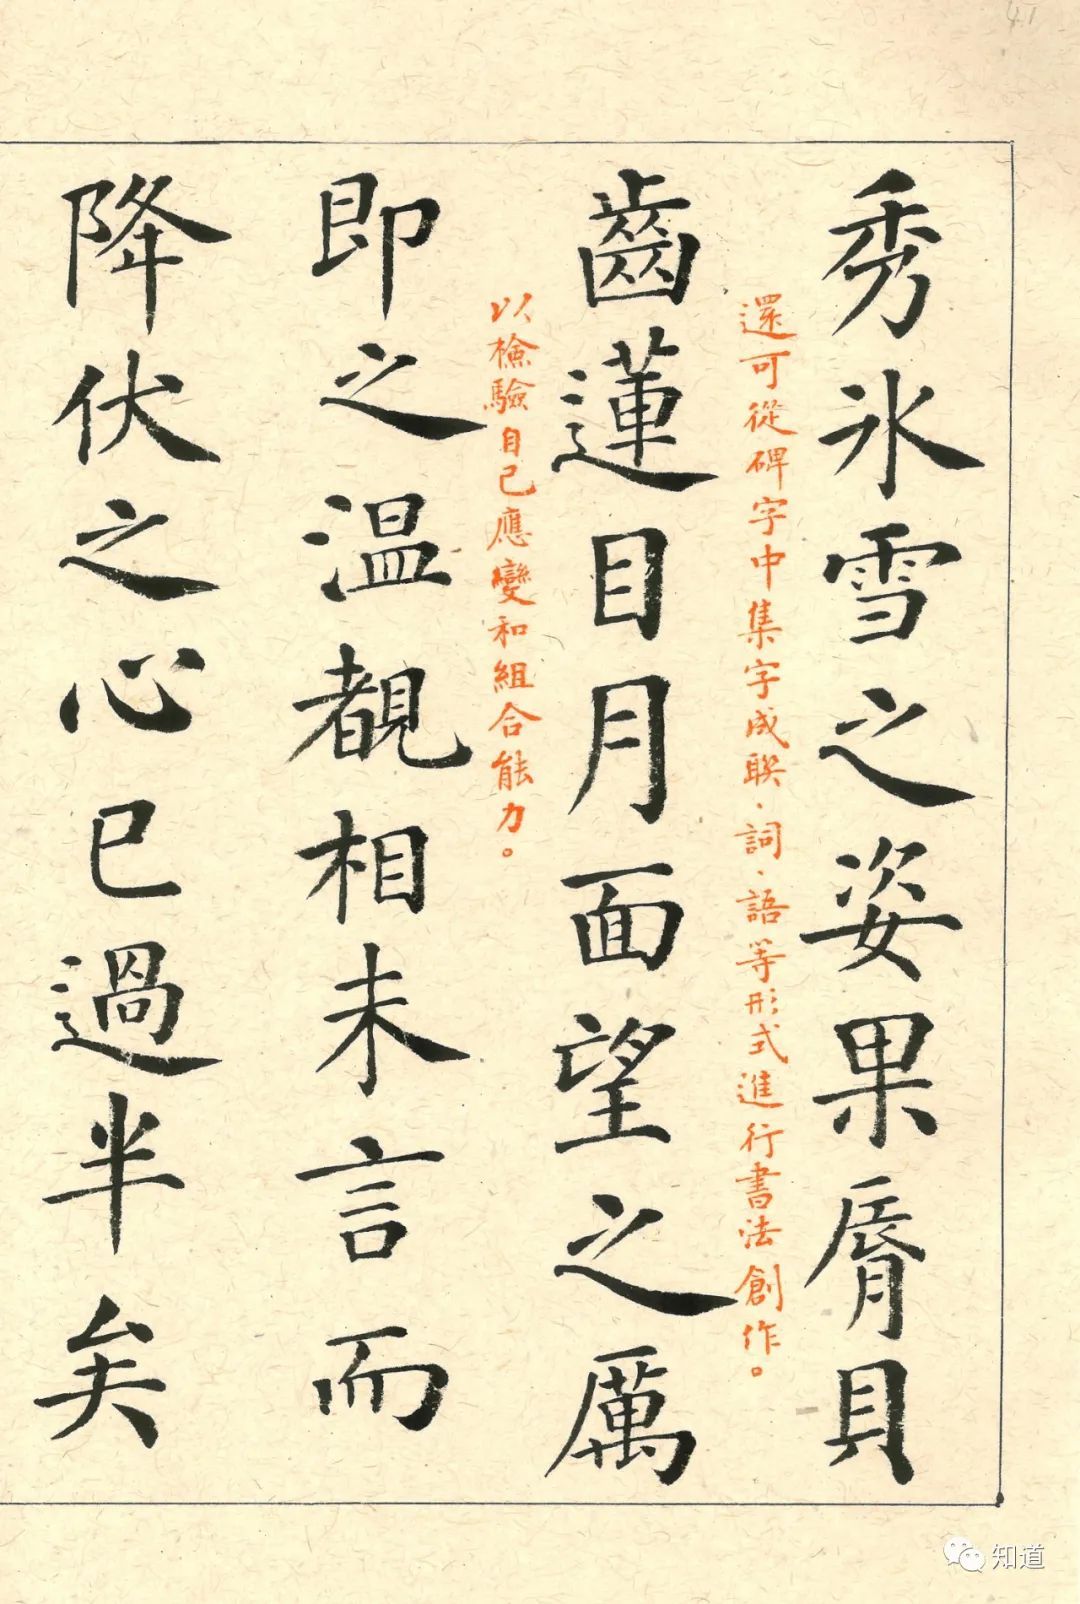 41
秀氷雪之姿果脣貝
還可從碑字中集字成联、詞、語等形式進行書法創作。
齒蓮目月面望之厲
以檢驗自己應變和組合能力。
即之温覩相未言而
降伏之心已過半矣
知道